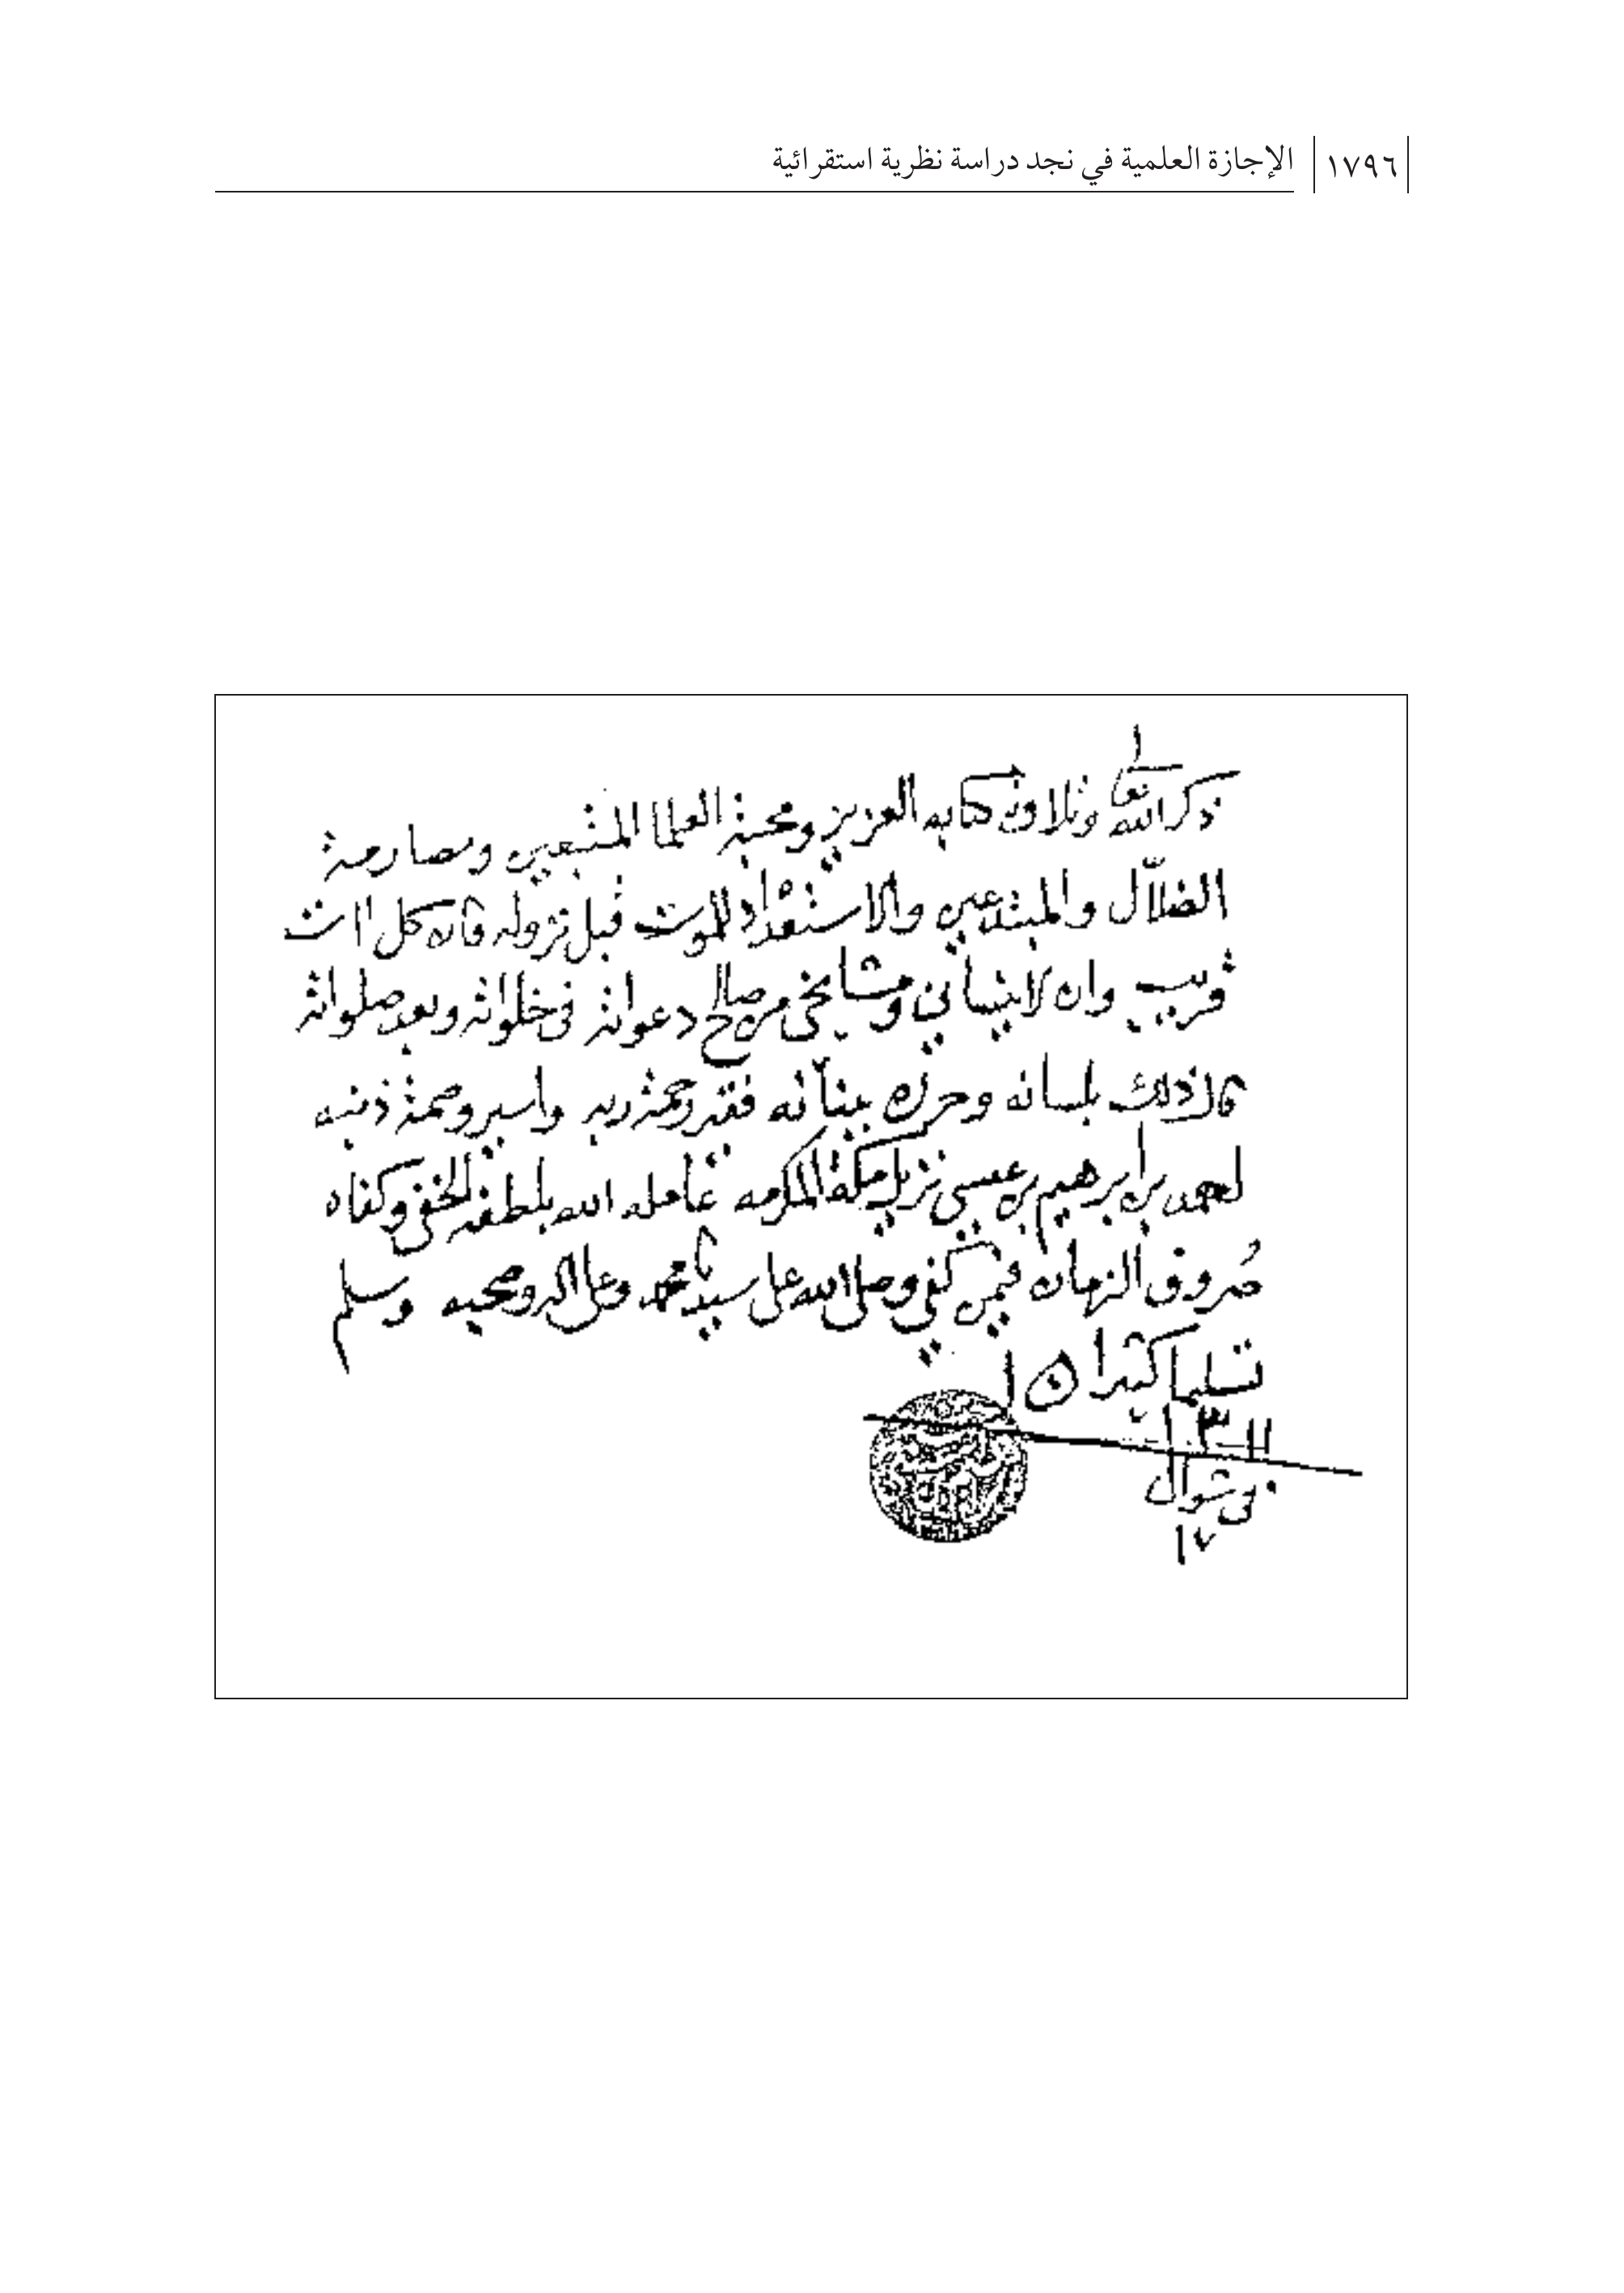 ١٧٩٦ الإجازة العلمية في نجد دراسة نظرية استقرائية
ذكر الله تعالى وتلاوة كتابه العزيز ومحبة العلما المتبعين ومصارمة
الضلاّل والمبتدعين والاستعداد للموت قبل نزوله فان كل اات
قريب وان لاينساني ومشايخي من صالح دعواته في خلواته وبعد صلواته
قال ذلك بلسانه وحرره ببنانه فقير رحمة ربه واسير وصمة ذنبه
احمد بن ابرهيم بن عيسى نزيل مكة المكرمه عامله الله بلطفه الخفي وكفاه
صُروف الزمان فيمن كفي وصلى الله على سيدنا محمد وعلى اله وصحبه وسلم
تسليما كثيرا
في شوال
١٧